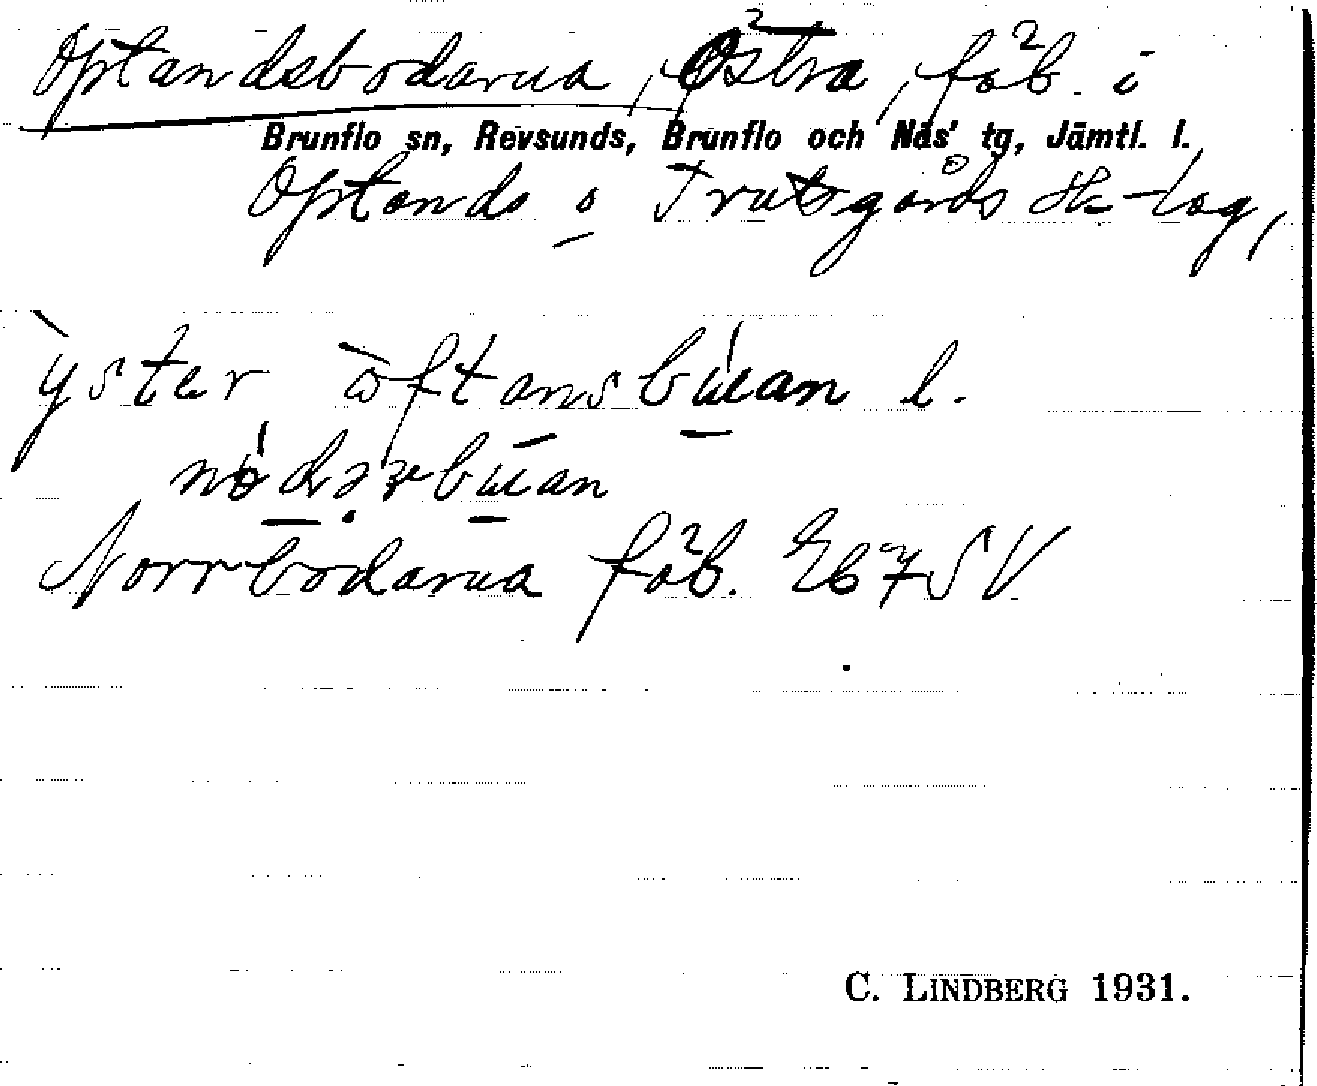 Optandsbodarna, Östra, fäb. i
Brunflo sn, Revsunds, Brunflo och Näs' tg, Jämtl. l.
Optands o Trutsgårds sk-lag,
yster òftansbuan l.
Norrbodarna fäb. Eb 7 SV
C. LINDBERG 1931.